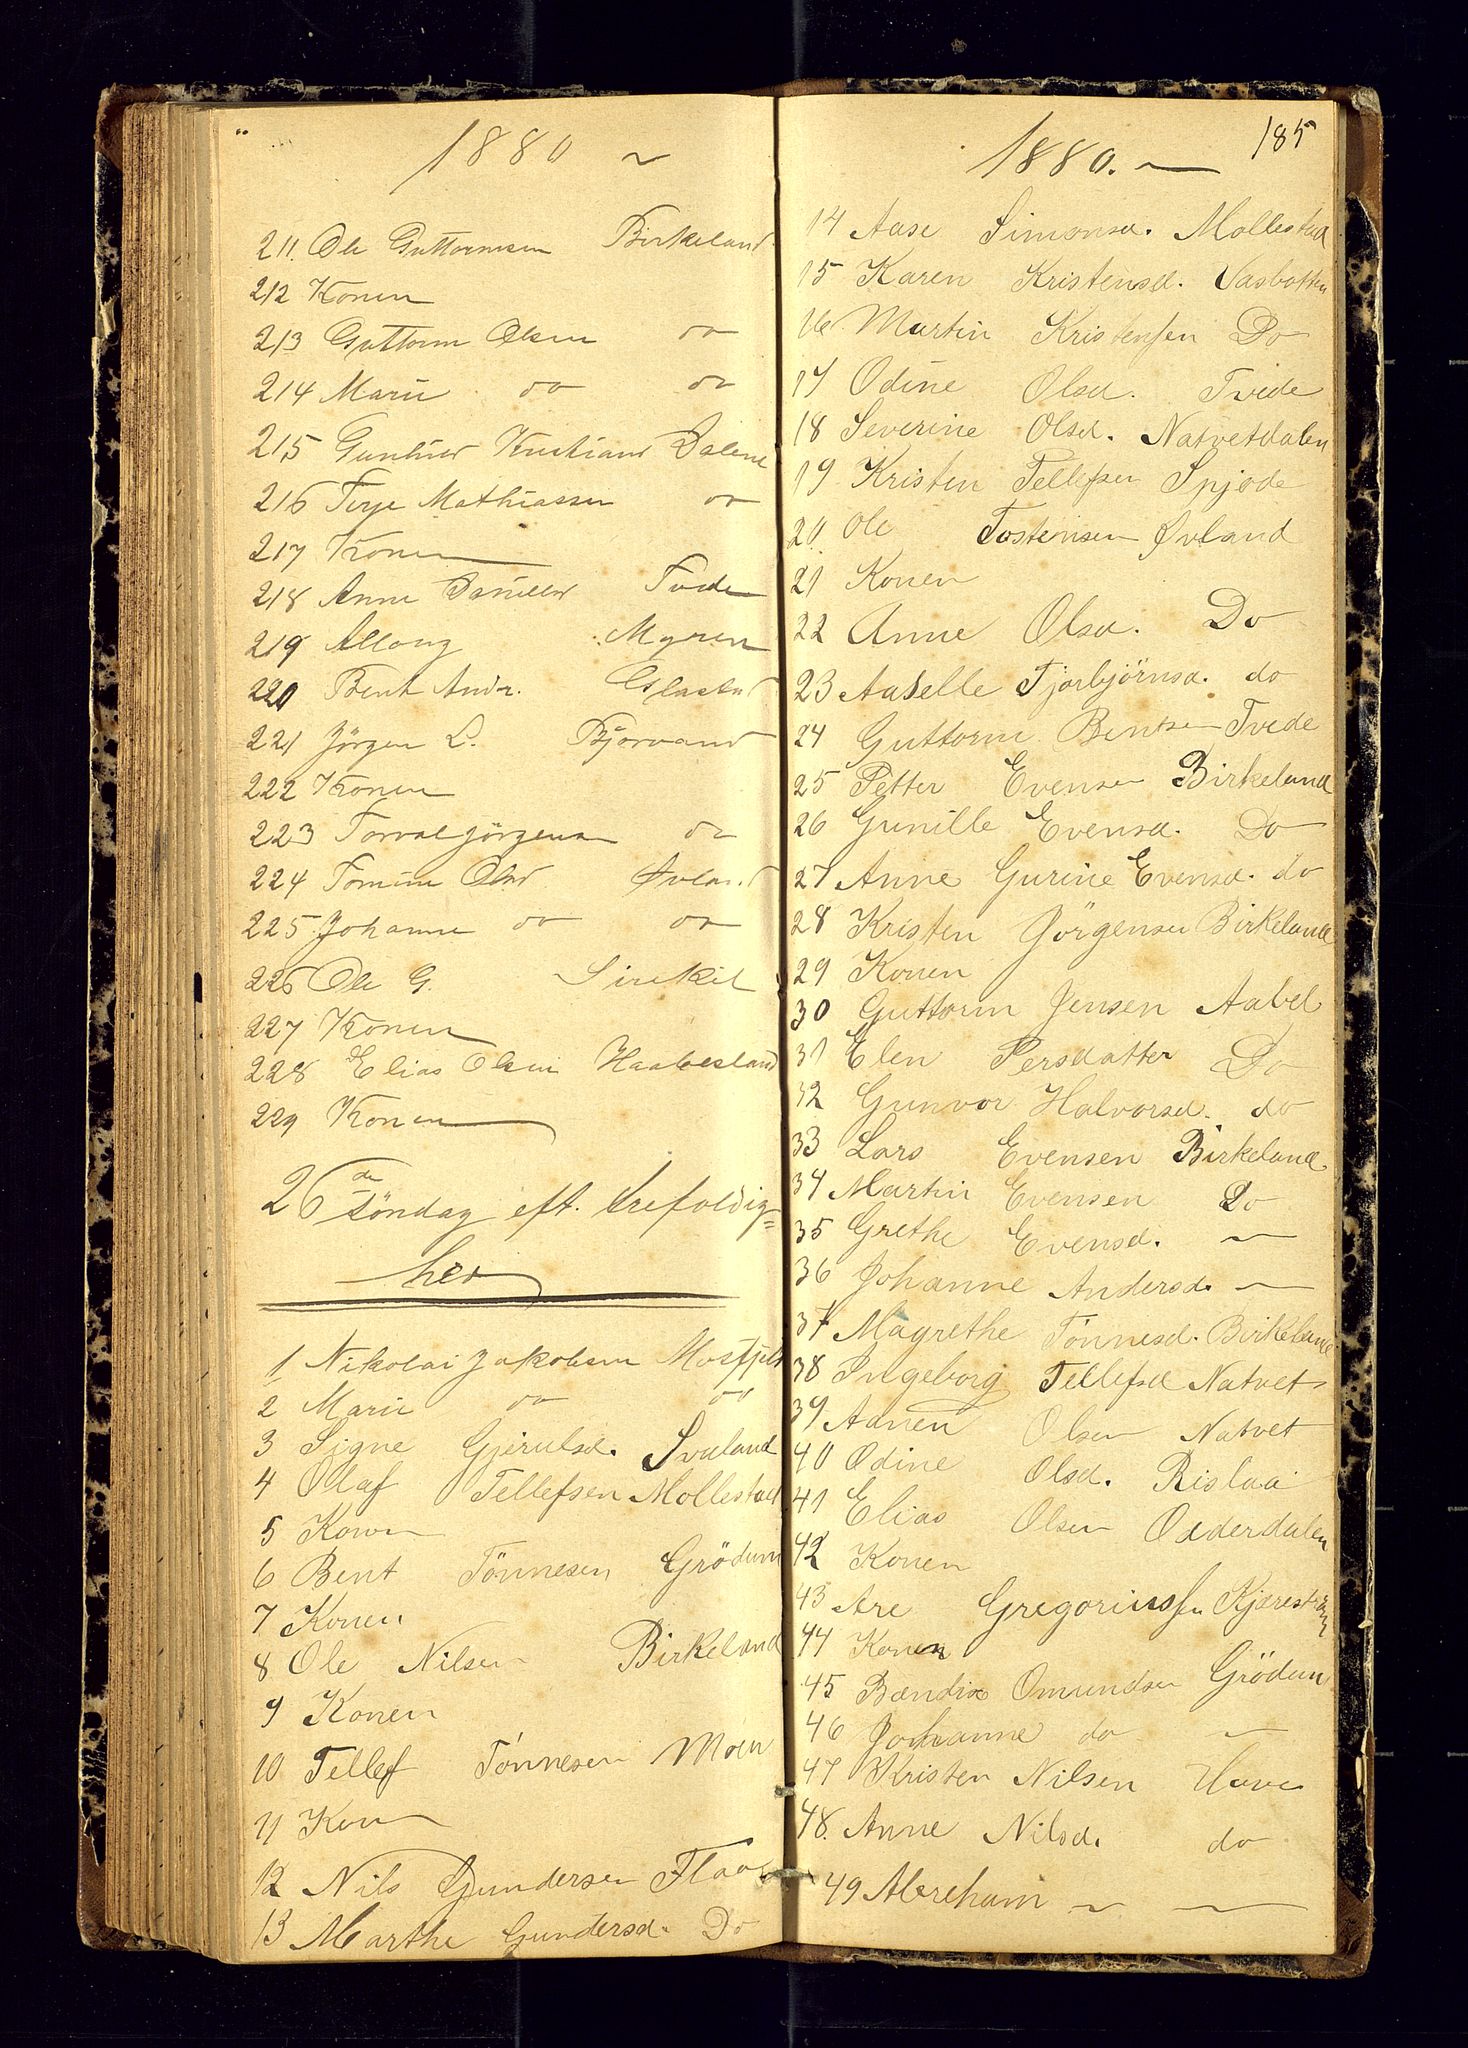 1880 ~
211. Ole Guttormsen Birkeland
212 Konen
213 Guttorm Olsen do
214 Marie do do
215 Gunhild Kristiansd Dalene
216 Terje Mathiassen do
217 Konen
218 Anne Tvede
219 Myren
220 Bent Andr.
221 Jörgen L. Bjorvand
222 Konen
223 Torval Jörgens do
224 Tomine Olsd Øvland
225 Johanne do do
226 Ole G. Sirekil
227 Konen
228 Elias Olsen Haabesland
229 Konen
26de Söndag eft. trefoldig=
hed
1 Nikolai Jakobsen Mosfjeld
2 Marie do do
3 Signe Gjerulsd. Svaland
4 Olaf Tellefsen Mollestad
5 Konen
6 Bent Tönnesen Grödum
7 Konen
8 Ole Nilsen Birkeland
9 Konen
10 Tellef Tönnesen Moen
11 Konen
12 Nils Gundersen Flaa
13 Marthe Gundersd. Do
185
1880. —
14 Aase Simonsd. Mollestad
15 Karen Kristensd. Vasbotten
16 Martin Kristensen Do
17 Odine Olsd. Tvede
18 Severine Olsd. Natvetdalen
19 Kristen Tellefsen Spjode
20. Ole Tostensen Øvland
21 Konen
22 Anne Olsd. Do
23 Aaselle Tjorbjörnsd. do
24 Guttorm Bentsen Tvede
25 Petter Evensen Birkeland
26 Gunille Evensd. Do
27 Anne Gurine Evensd. do
28 Kristen Jörgensen Birkeland
29 Konen
30 Guttorm Jensen Aabel
31 Elen Persdatter Do
32 Gunvor Halvorsd. do
33 Lars Evensen Birkeland
34 Martin Evensen Do
35 Grethe Evensd. —
36 Johanne Andersd. —
37 Magrethe Tönnesd. Birkeland
38 Ingeborg Tellefsd Natvet
39 Adnen Olsen Natvet
40 Odine Olsd. Rislaa
41 Elias Olsen Odderdalen
42 Konen
43 Are Gregoriussen Kjærestrøm
44 Konen
45 Bændix Omundsen Grödum
46 Johanne do —
47 Kristen Nilsen Uave
48. Anne Nilsd. do
49 Abreham ~ —